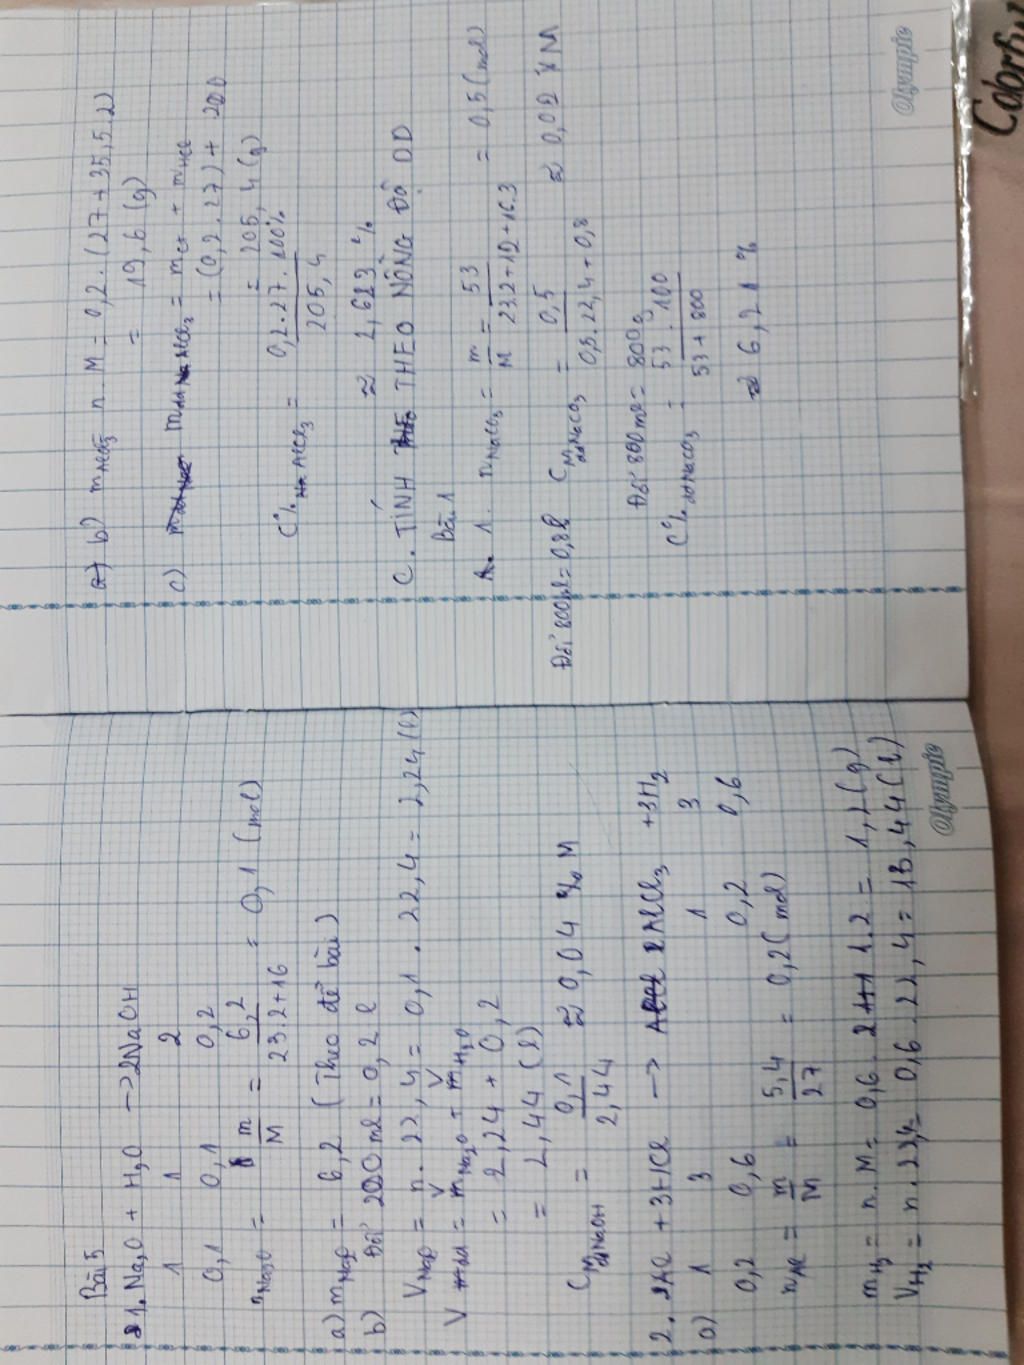 Bài 5
1. Na2O + H2O → 2NaOH
1 1 2
0,1 0,1 0,2
nNa2O = m/M = 6,2/23.2+16 = 0,1 (mol)
a) mNa2O = 6,2 (Theo đề bài)
b) Đổi 200 ml = 0,2 l
VNa2O = n. 22,4 = 0,1 . 22,4 = 2,24 (l)
Vdd = VNa2O + VH2O
= 2,24 + 0,2
= 2,44 (l)
CM ddNaOH = 0,1/2,44 ≈ 0,04 M
2. 2Al + 3HCl → 2AlCl3 + 3H2
a) 1 3 1 3
0,2 0,6 0,2 0,6
nAl = m/M = 5,4/27 = 0,2 (mol)
mH2 = n. M = 0,6. 1.2 = 1,2 (g)
VH2 = n. 22,4 = 0,6. 22,4 = 13,44 (l)
Olympic
b) mAlCl3 = n. M = 0,2. (27+35,5.2)
= 19,6 (g)
c) mdd AlCl3 = mct + mHCl
= (0,2 . 27) + 200
= 205,4 (g)
C% AlCl3 = 0,2.27.100%/205,4
≈ 2,623 %
C. TÍNH THEO NỒNG ĐỘ DD
Bài 1
1. nNaCO3 = m/M = 53/23.2+12+16.3 = 0,5 (mol)
Đổi 800ml = 0,8l CM ddNaCO3 = 0,5/0,5.22,4+0,8 ≈ 0,02 M
Đổi 800ml = 800g
C% ddNaCO3 = 53.100/53+800
≈ 6,21 %
Olympic
Colorful